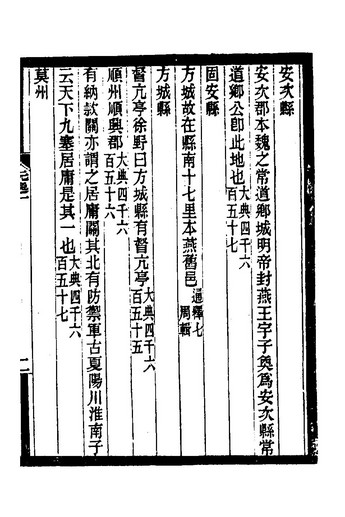 安次縣
安次郡本魏之常道鄉城明帝封燕王宇子奐爲安次縣常
道鄉公卽此地也大典四千六百五十七
固安縣
方城故在縣南十七里本燕舊邑通釋七周輯
方城縣
督亢亭徐野曰方城縣有督亢亭大典四千六百五十五
順州順興郡大典四千六百五十六
有納款關亦謂之居庸關其北有防禦軍古夏陽川淮南子
云天下九塞居庸是其一也大典四千六百五十七
莫州